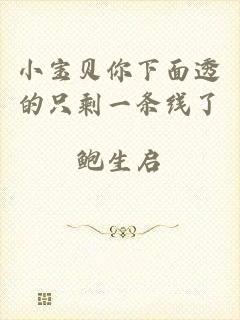 小宝贝你下面透
的只剩一条线了
鲍生启